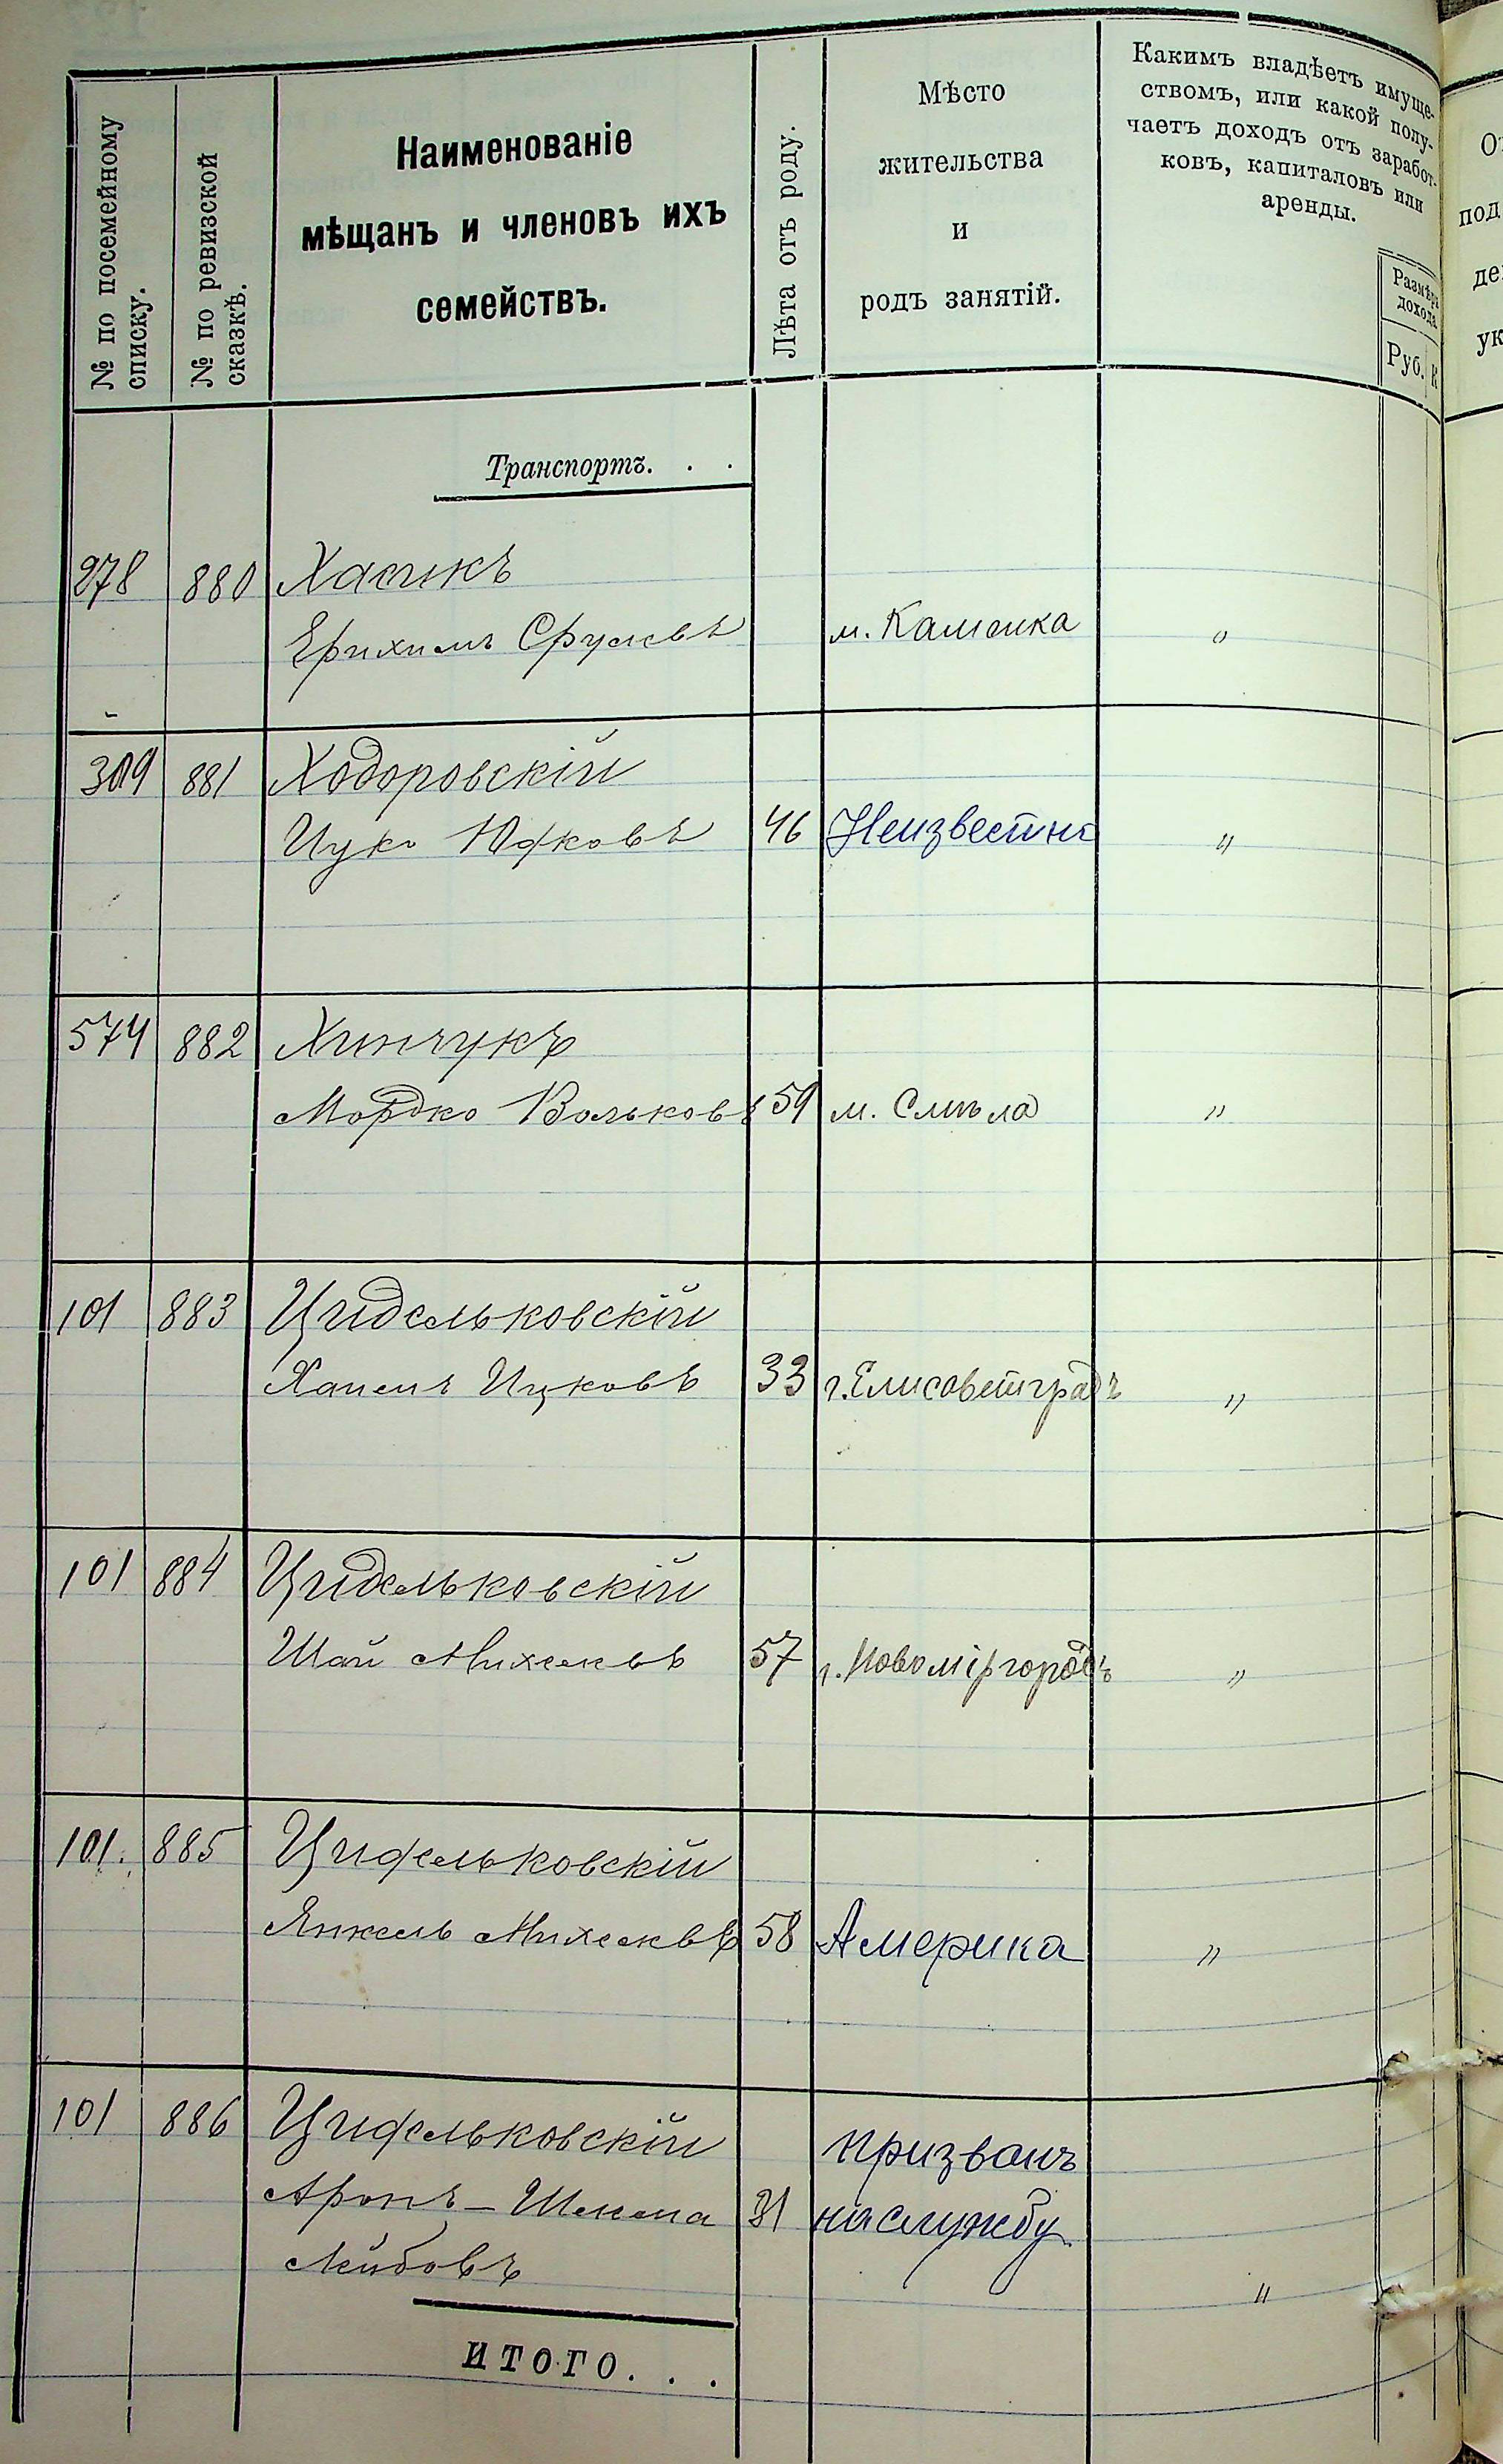 № по посемейному
списку.
№ по ревизской
сказкѣ.
Наименованіе
мѣщанъ и членовъ ихъ
семействъ.
Лѣта отъ роду.
Мѣсто
жительства
и
родъ занятій.
Какимъ владѣетъ имуще-
ствомъ, или какой полу-
чаетъ доходъ отъ заработ-
ковъ, капиталовъ или
аренды.
Размѣръ
дохода
Руб. К
Транспортъ. . .
278 880 Хасикъ
Ерихимъ Срулевъ м. Каменка "
309 881 Ходоровскій
Ицко Юдковъ 46 Неизвестно "
574 882 Хинчукъ
Мордко Вольковъ 59 м. Смѣла "
101 883 Цидельковскій
Хаимъ Ицковъ 33 г. Елисоветградъ "
101 884 Цидельковскій
Шай Михелевъ 57 г. Новомiргородъ "
101. 885 Цидельковскій
Янкель Михелевъ 58 Америка "
101 886 Цидельковскій призванъ
Аронъ - 31 на службу
Лейбовъ "
ИТОГО. . .